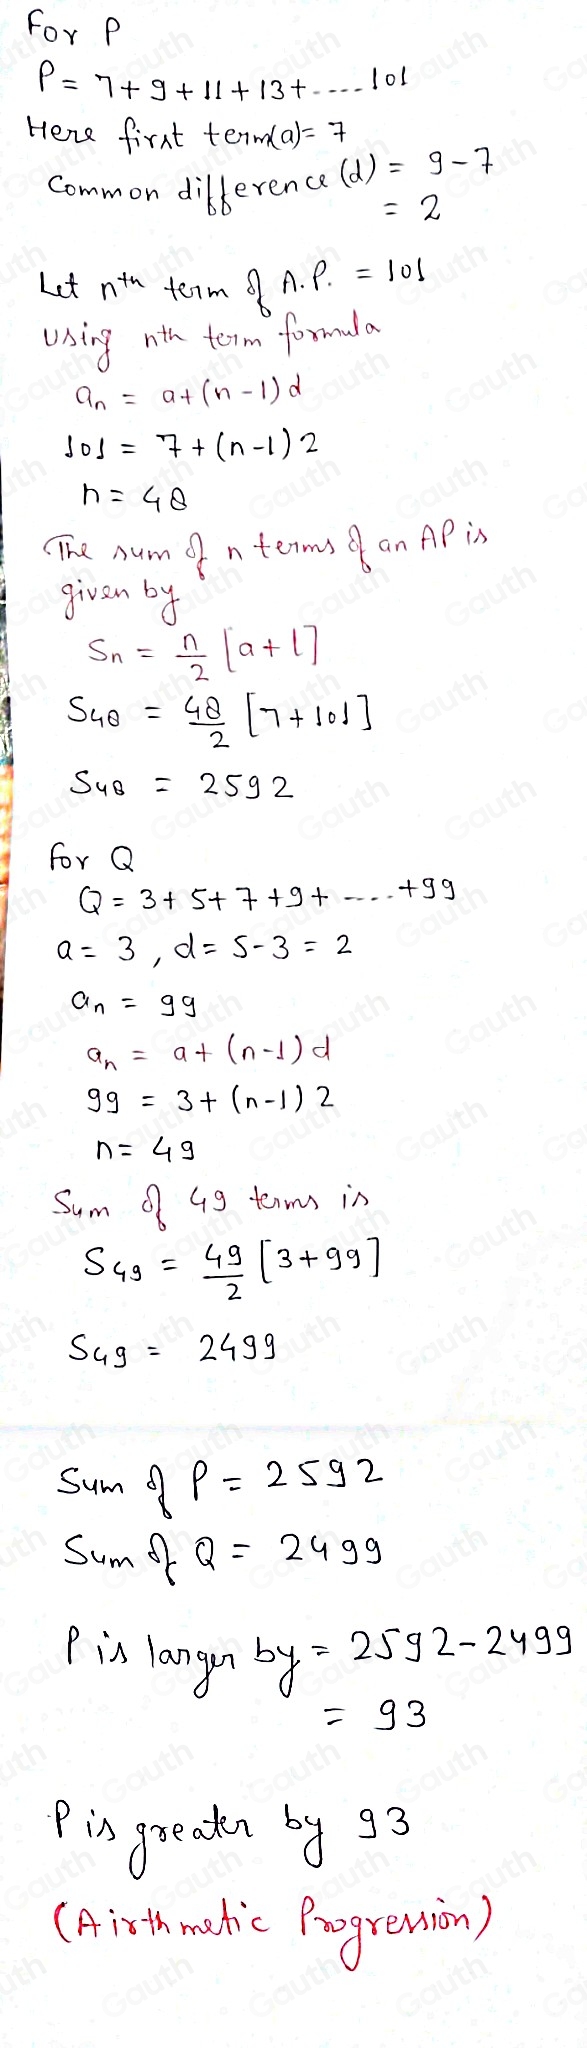 For P
P = 7 + 9 + 11 + 13 + ..... 101
Here first term(a) = 7
Common difference (d) = 9 - 7
= 2
Let nth term of A.P. = 101
Using nth term formula
an = a + (n - 1) d
101 = 7 + (n - 1) 2
n = 48
The sum of n terms of an AP is
given by
Sn = n/2 [a + l]
S48 = 48/2 [7 + 101]
S48 = 2592
For Q
Q = 3 + 5 + 7 + 9 + ..... + 99
a = 3, d = 5 - 3 = 2
an = 99
an = a + (n - 1) d
99 = 3 + (n - 1) 2
n = 49
Sum of 49 terms is
S49 = 49/2 [3 + 99]
S49 = 2499
Sum of P = 2592
Sum of Q = 2499
P is larger by = 2592 - 2499
= 93
P is greater by 93
(Airthmetic Progression)